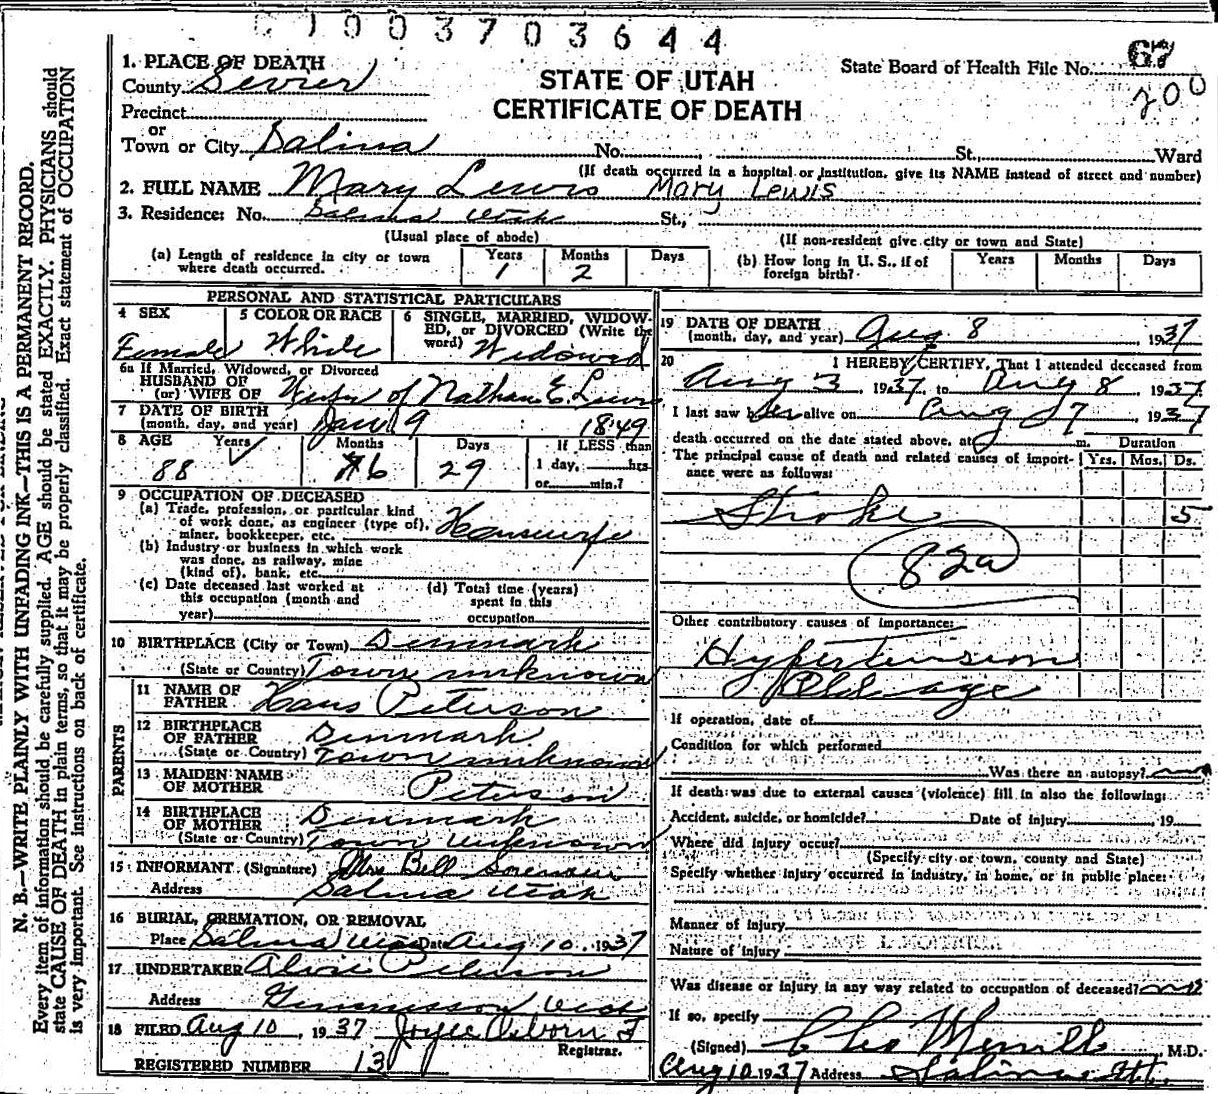 C1003703644
1. PLACE OF DEATH
County Sevier
STATE OF UTAH
CERTIFICATE OF DEATH
State Board of Health File No. 67
200
Precinct
or
Town or City Salina No. St., Ward
(If death occurred in a hospital or institution, give its NAME instead of street and number)
2. FULL NAME Mary Lewis Mary Lewis
3. Residence: No. Salina Utah St.,
(Usual place of abode)
(If non-resident give city or town and State)
(a) Length of residence in city or town where death occurred. Years 1 Months 2 Days
(b) How long in U. S., if of foreign birth? Years Months Days
PERSONAL AND STATISTICAL PARTICULARS
4 SEX Female
5 COLOR OR RACE White
6 SINGLE, MARRIED, WIDOWED, or DIVORCED (Write the word) Widowed
6a If Married, Widowed, or Divorced
HUSBAND OF
(or) WIFE OF Wife of Nathan E. Lewis
7 DATE OF BIRTH
(month, day, and year) Jan 9 1849
8 AGE Years 88 Months 6 Days 29 If LESS than 1 day, hrs. or min.?
9 OCCUPATION OF DECEASED
(a) Trade, profession, or particular kind of work done, as engineer (type of), miner, bookkeeper, etc. Housewife
(b) Industry or business in which work was done, as railway, mine (kind of), bank, etc.
(c) Date deceased last worked at this occupation (month and year)
(d) Total time (years) spent in this occupation
10 BIRTHPLACE (City or Town) Denmark
(State or Country) Town unknown
PARENTS
11 NAME OF FATHER Hans Peterson
12 BIRTHPLACE OF FATHER Denmark
(State or Country) Town unknown
13 MAIDEN NAME OF MOTHER Peterson
14 BIRTHPLACE OF MOTHER Denmark
(State or Country) Town Unknown
15 INFORMANT (Signature) Mrs Bell Sorensen
Address Salina Utah
16 BURIAL, CREMATION, OR REMOVAL
Place Salina Utah Date Aug 10, 1937
17 UNDERTAKER Peterson
Address Gunnisson Utah
18 FILED Aug 10, 1937 Joyce Osborn
Registrar.
REGISTERED NUMBER 13
19 DATE OF DEATH
(month, day, and year) Aug 8 1937
20 I HEREBY CERTIFY, That I attended deceased from
Aug 3 1937, to Aug 8 1937
I last saw her alive on Aug 7 1937
death occurred on the date stated above, at m. Duration
The principal cause of death and related causes of importance were as follows: Yrs. Mos. Ds.
Stroke 5
82a
Other contributory causes of importance:
Hypertension
Old age
If operation, date of
Condition for which performed
Was there an autopsy? no
If death was due to external causes (violence) fill in also the following:
Accident, suicide, or homicide? Date of injury 19
Where did injury occur?
(Specify city or town, county and State)
Specify whether injury occurred in industry, in home, or in public place:
Manner of injury
Nature of injury
Was disease or injury in any way related to occupation of deceased? no
If so, specify
(Signed) Cleo Merrill M.D.
Aug 10 1937 Address Salina Ut.
N. B.—WRITE PLAINLY WITH UNFADING INK—THIS IS A PERMANENT RECORD.
Every item of information should be carefully supplied. AGE should be stated EXACTLY. PHYSICIANS should
state CAUSE OF DEATH in plain terms, so that it may be properly classified. Exact statement of OCCUPATION
is very important. See instructions on back of certificate.